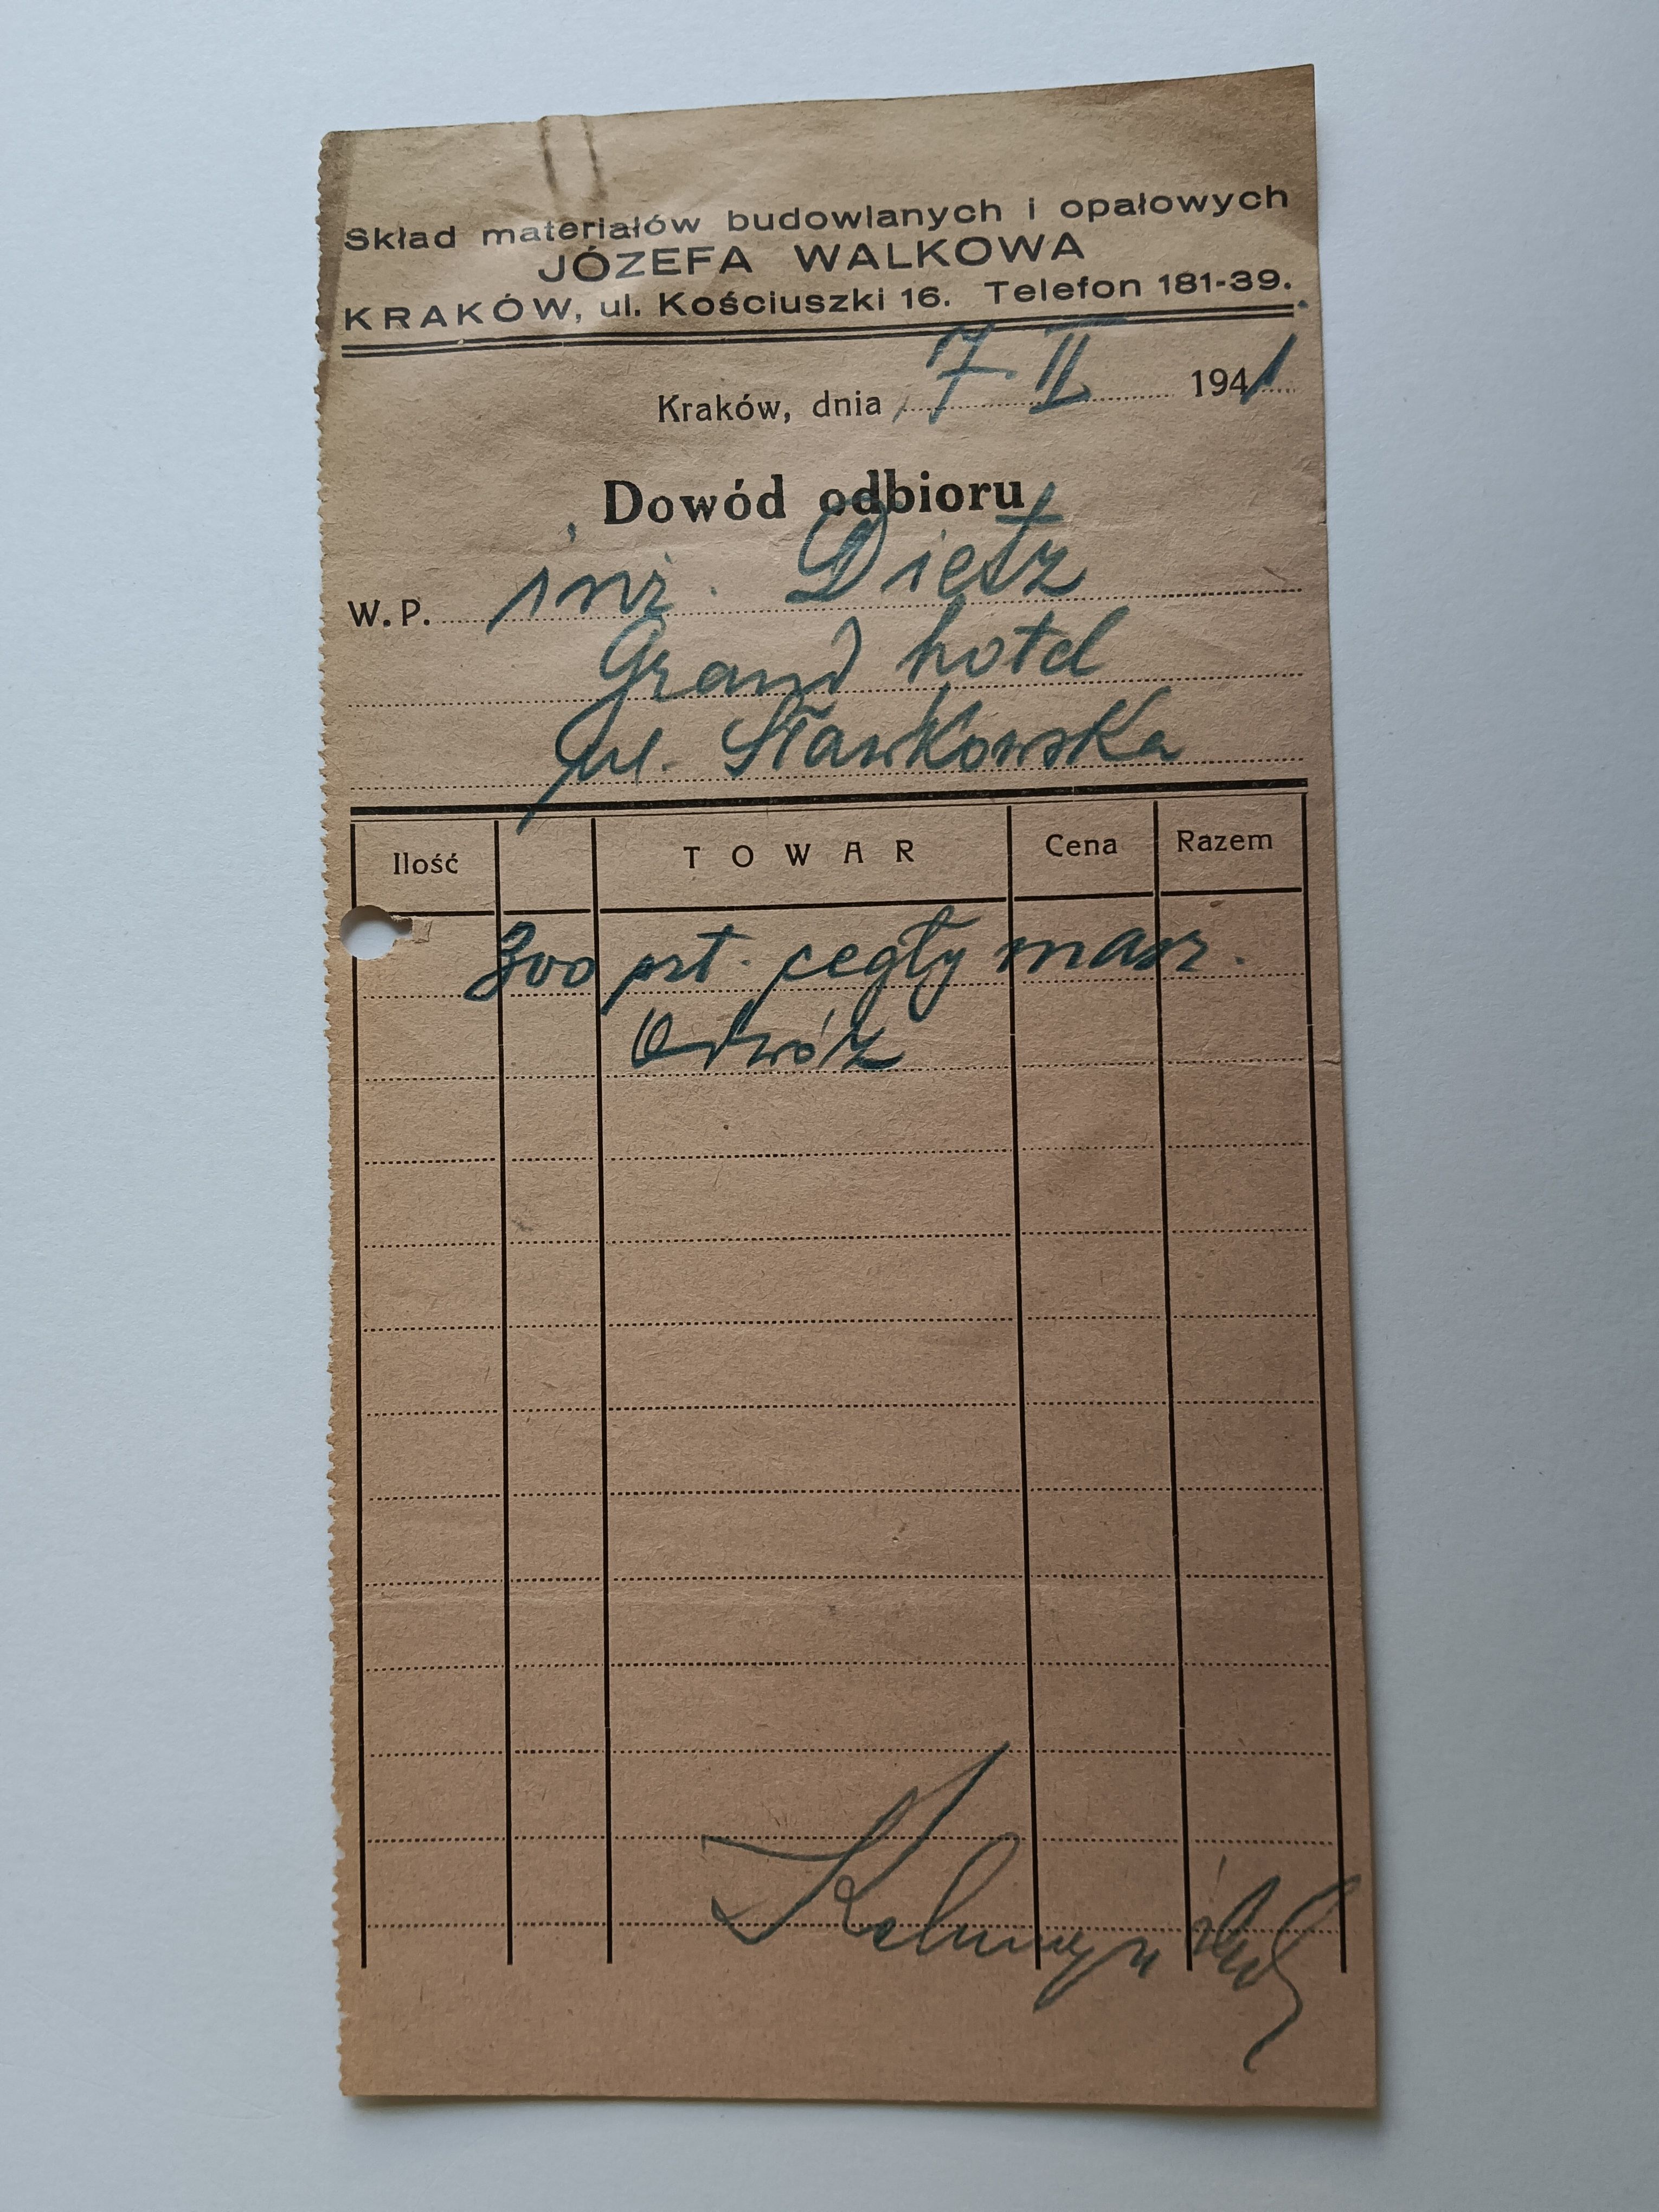 Skład materiałów budowlanych i opałowych
JÓZEFA WALKOWA
KRAKÓW, ul. Kościuszki 16. Telefon 181-39.
Kraków, dnia 7 II 1941
Dowód odbioru
W. P. inż. Dietz
Grand hotel
ul. Sławkowska
Ilość TOWAR Cena Razem
300 szt. cegły masz.
Odwóz